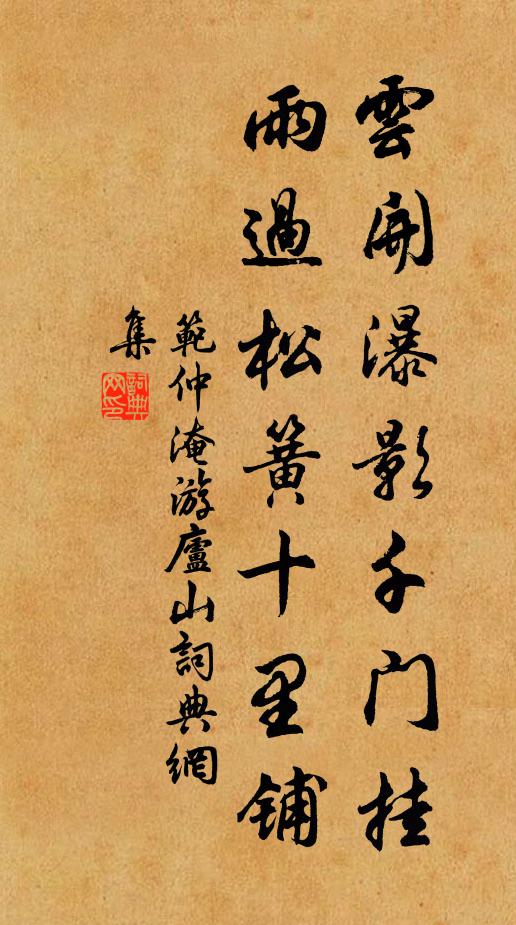 雲開瀑影千门挂
雨過松簧十里铺
範仲淹游廬山詞典網
集
詞典
网印